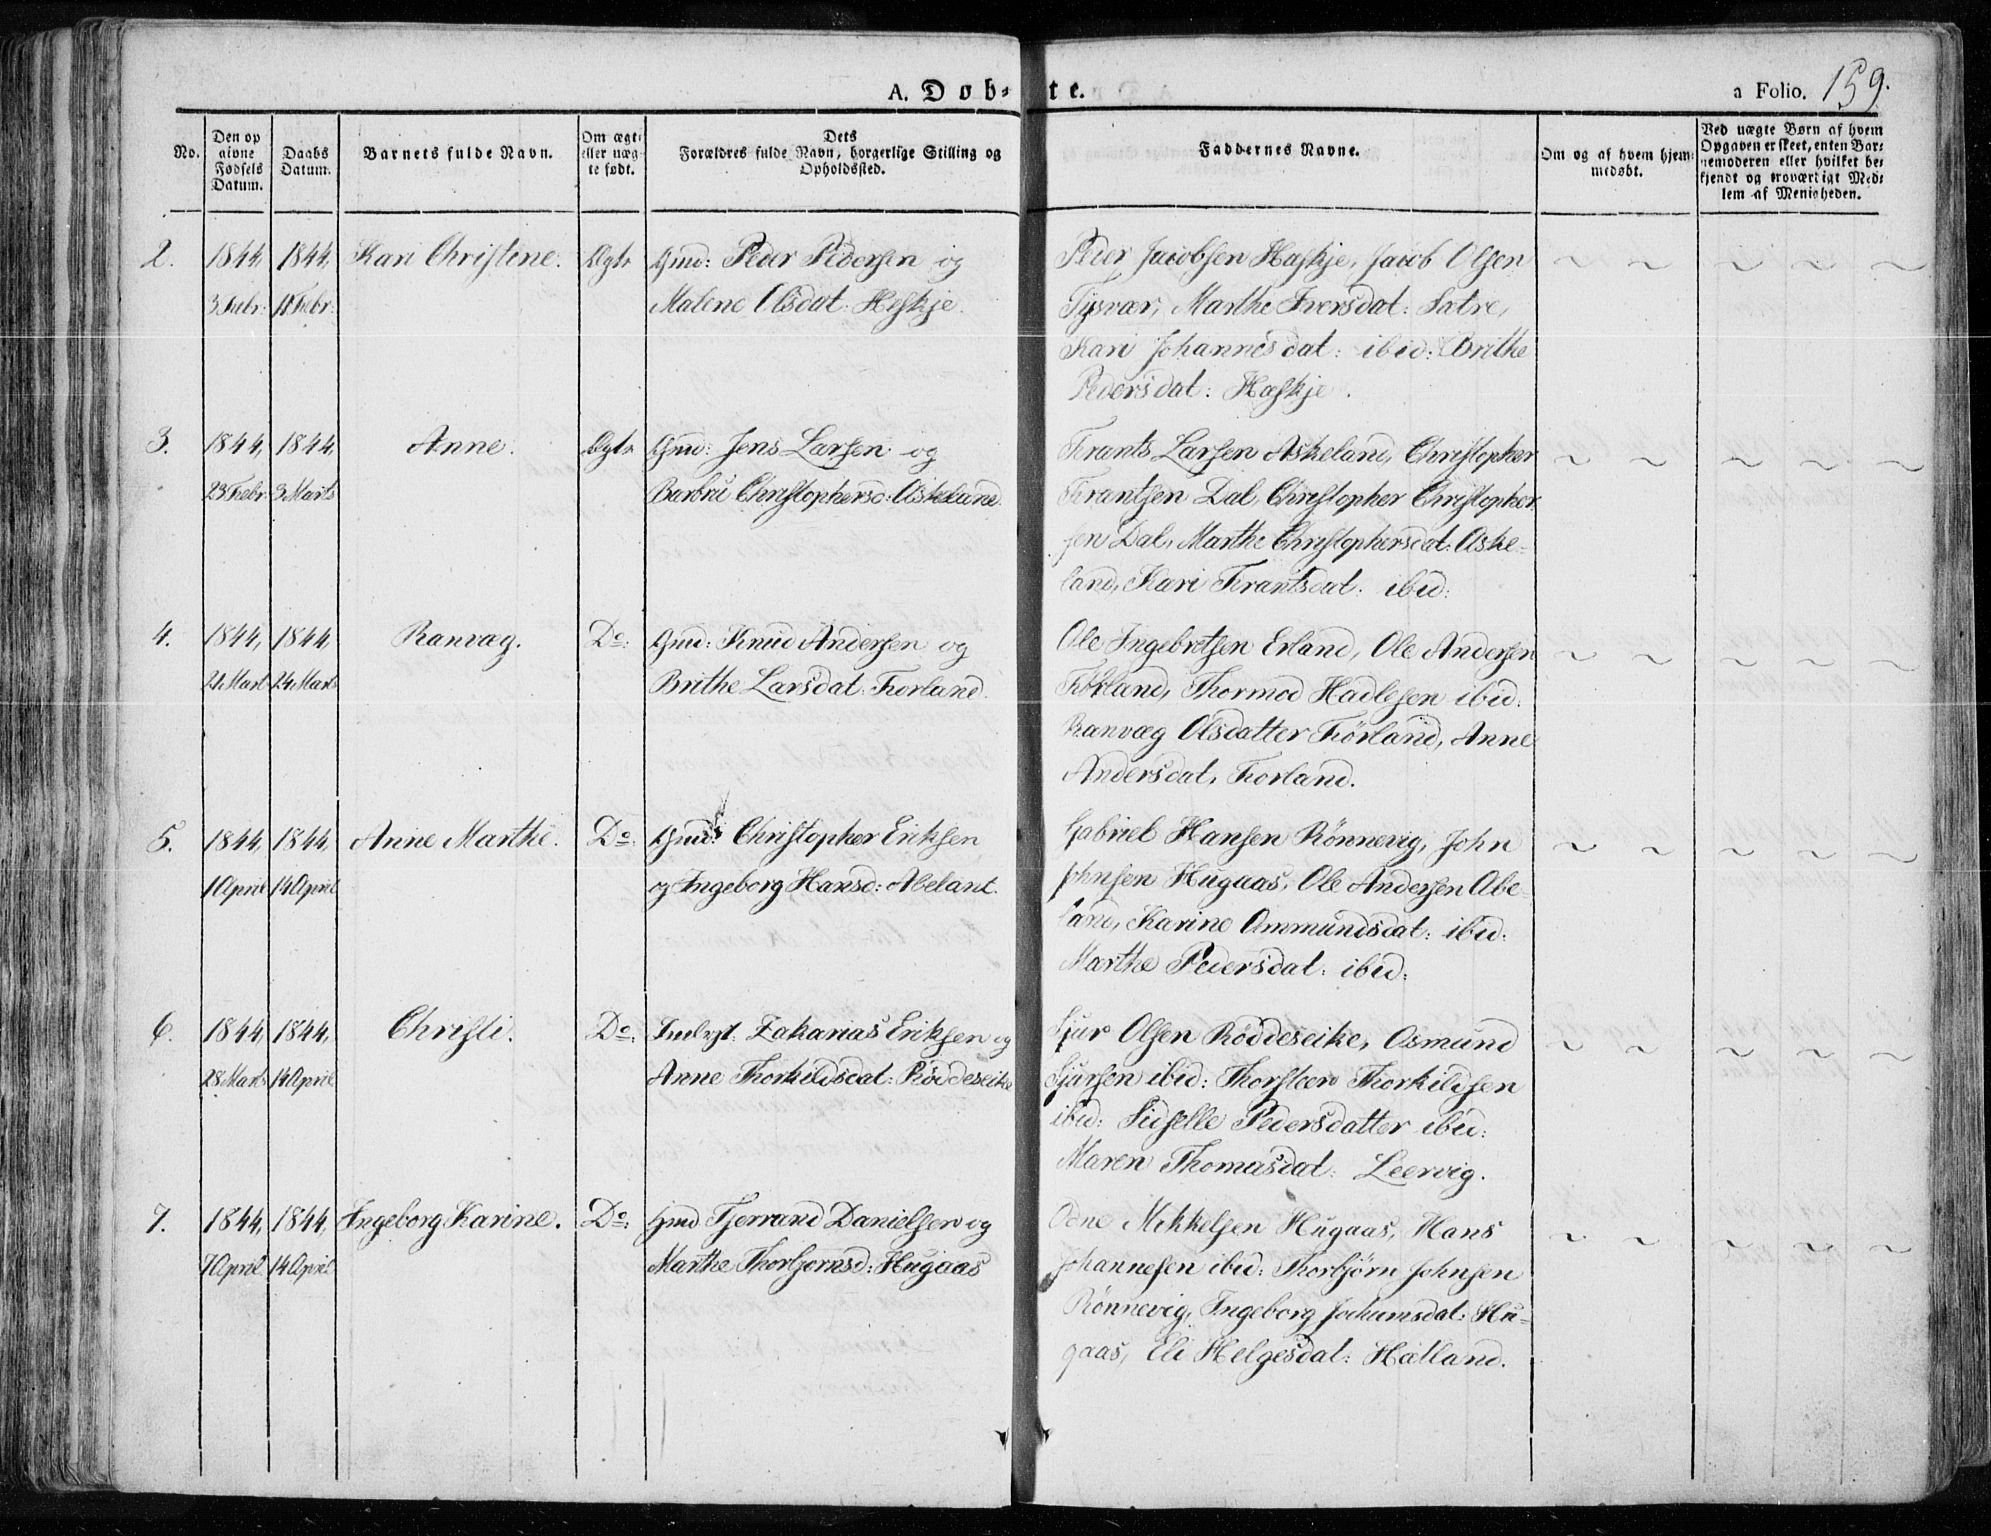 A. Døb-te.
a Folio. 159.
No.
Den op
givne
Fødsels
Datum.
Daabs
Datum.
Barnets fulde Navn.
Om ægte
eller uæg-
te født.
Dets
Forældres fulde Navn, borgerlige Stilling og
Opholdssted.
Faddernes Navne.
Om og af hvem hjem-
medøbt.
Ved uægte Børn af hvem
Opgaven er skeet, enten Bar-
nemoderen eller hvilket be-
kjendt og troværdigt Med-
lem af Menigheden.
2.
1844,
3 Febr:
1844,
18 Febr:
Kari Christine.
Ægte
Gmd: Peder Pedersen og
Malene Olsdat: Heskje.
Peder Jacobsen Haskje, Jacob Olsen
Tysvær, Marthe Iversdat: Satre,
Kari Johannesdat: ibid: Brithe
Pedersdat: Haskje.
3.
1844,
23 Febr:
1844,
3 Marts
Anne.
Ægte
Gmd: Jens Larsen og
Barbru Christophersd: Askeland.
Frants Larsen Askeland, Christopher
Frantsen Dal, Christopher Christopher
sen Dal, Marthe Christophersdat: Aske-
land, Kari Frantsdat: ibid:
4.
1844,
21 Marts
1844,
24 Marts
Ranvæg.
Do:
Gmd: Knud Andersen og
Brithe Larsdat: Førland.
Ole Ingebretsen Erland, Ole Andersen
Førland, Thormod Hadlesen ibid:
Ranvæg Olsdatter Førland, Anne
Andersdat, Førland.
5.
1844,
1 April
1844,
14 April
Anne Marthe.
Do:
Gmd: Christopher Eriksen
og Ingeborg Hansd: Abeland.
Gabriel Hansen Rønnevig, John
Johnsen Hugaas, Ole Andersen Abe-
land, Karine Ommundsdat: ibid:
Marthe Pedersdat: ibid:
6.
1844,
28 Marts
1844,
14 April
Christi.
Do:
Indvgt: Zakarias Eriksen og
Anne Thorkildsdat: Røddeseike
Sjur Olsen Røddeseike, Osmund
Sjursen ibid: Thorsten Thorkildsen
ibid: Sidselle Pedersdatter ibid:
Maren Thomasdat: Leervig.
7.
1844,
7 April
1844,
14 April
Ingeborg Karine.
Do:
Gmd Tjerrand Danielsen og
Marthe Thorbjørnsd: Hugaas
Odne Mikkelsen Hugaas, Hans
Johannesen ibid: Thorbjørn Johnsen
Rønnevig, Ingeborg Jochumsdat: Hu-
gaas, Eli Helgesdat: Hatland.